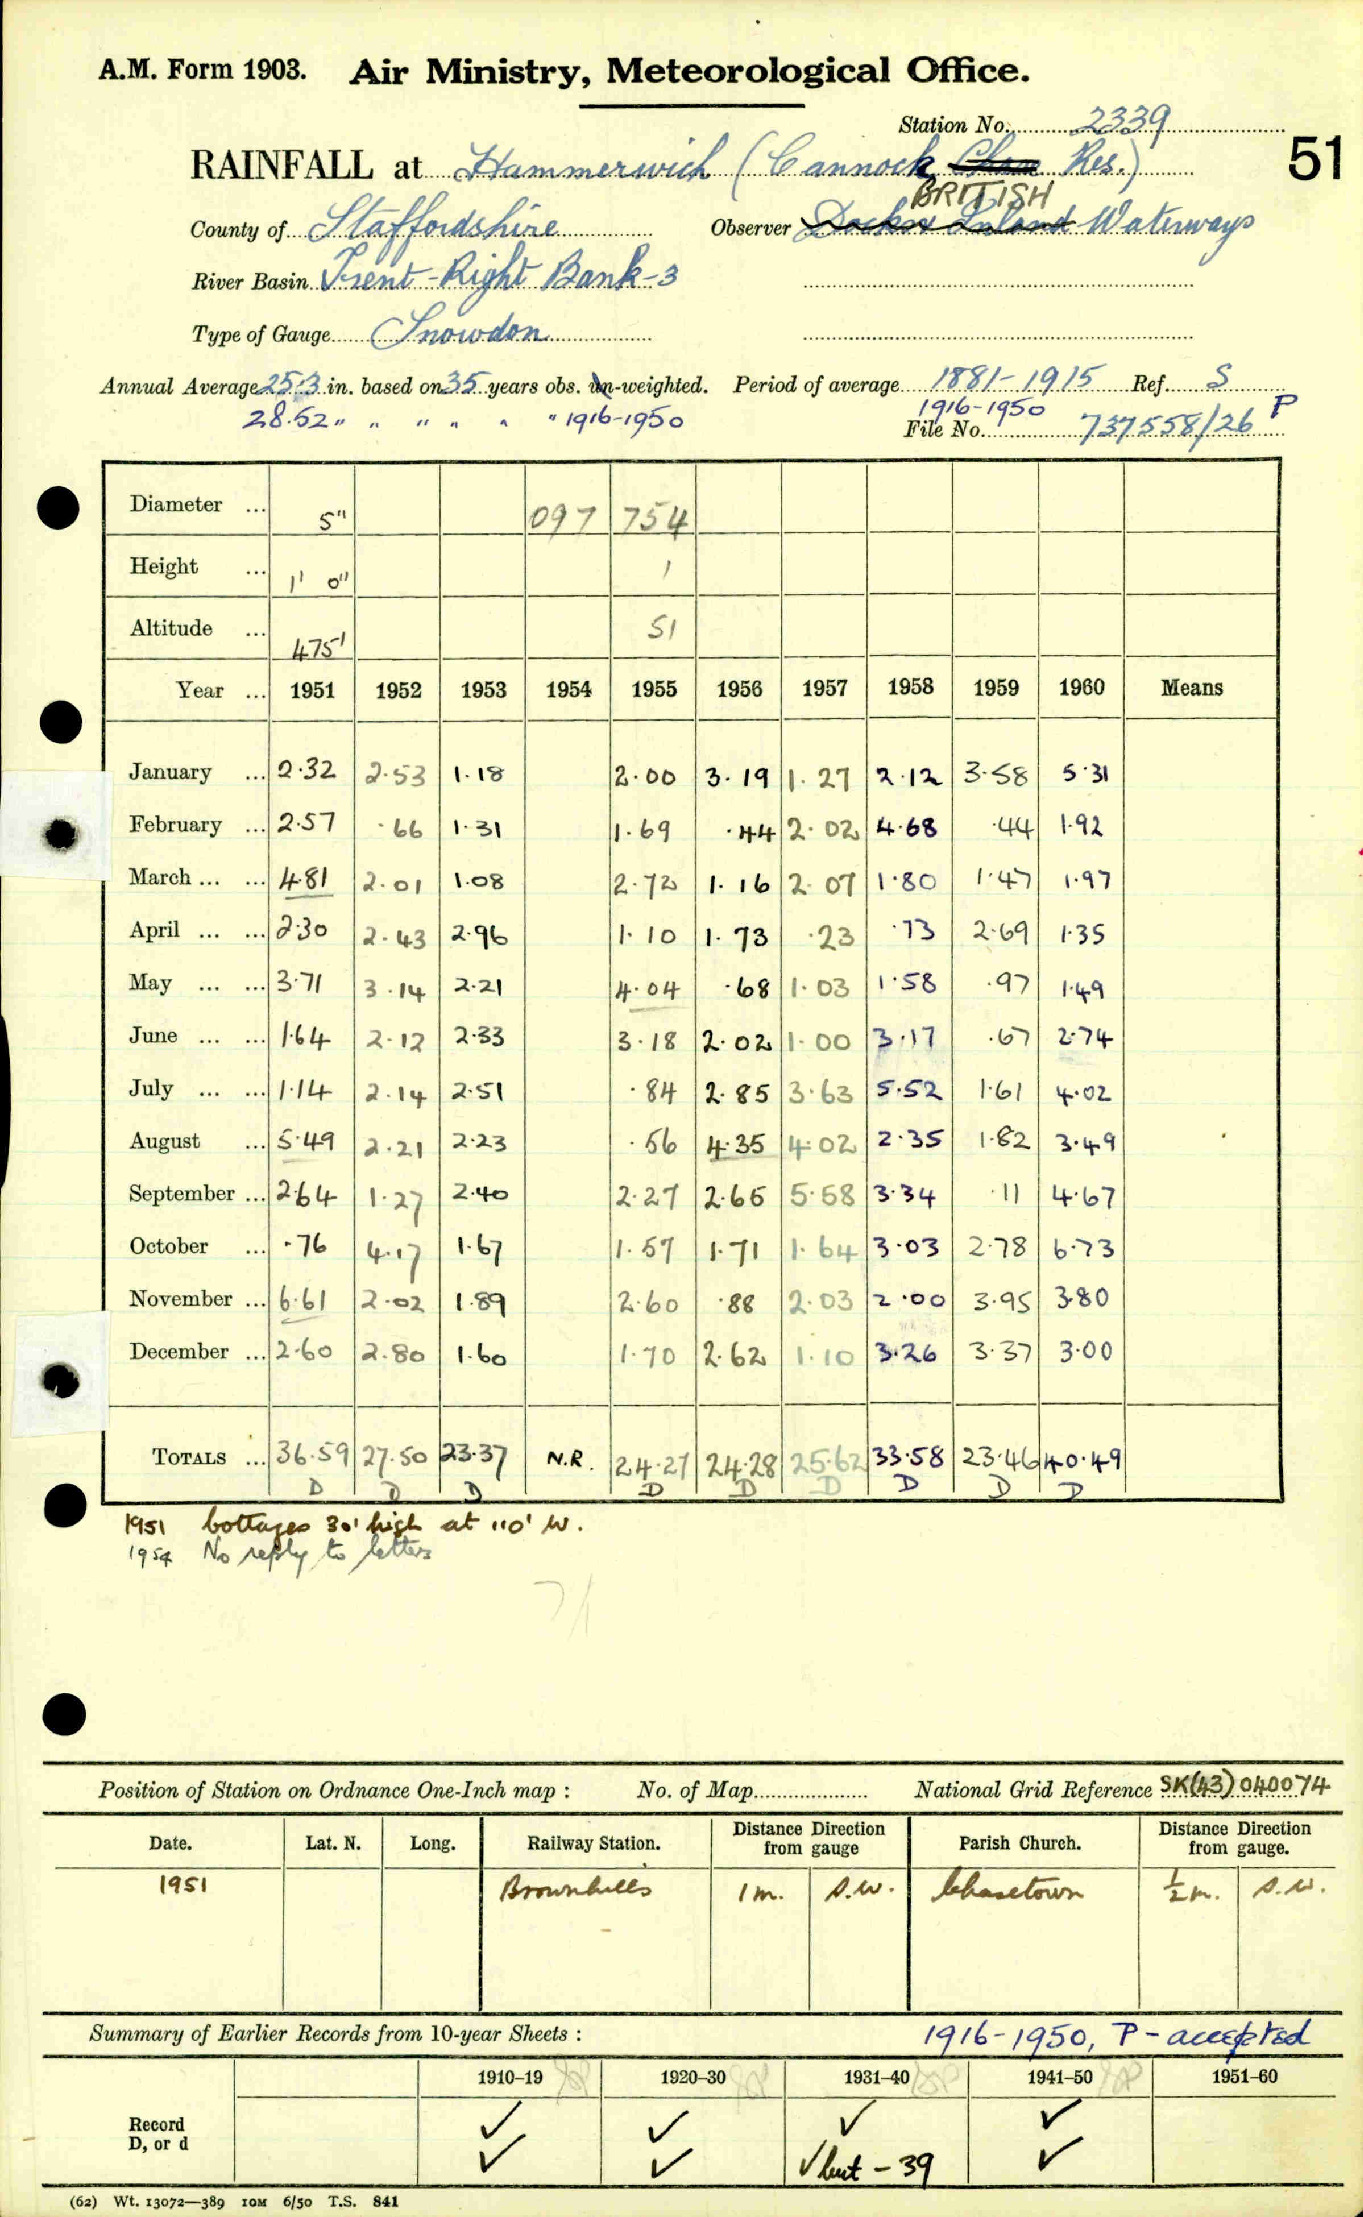 A.M. Form 1903. Air Ministry, Meteorological Office.
Station No. 2339
51
RAINFALL at Hammerwich (Cannock Chase Res.)
BRITISH
County of Staffordshire Observer Docks & Inland Waterways
River Basin Trent-Right Bank-3
Type of Gauge Snowdon
Annual Average 25.3 in. based on 35 years obs. un-weighted. Period of average 1881-1915 Ref. S
28.52 " " " " " " 1916-1950 1916-1950 P
File No. 737558/26
Diameter ... 5" 097 754
Height ... 1' 0" 1
Altitude ... 475' 51
Year ... 1951 1952 1953 1954 1955 1956 1957 1958 1959 1960 Means
January ... 2.32 2.53 1.18 2.00 3.19 1.27 2.12 3.58 5.31
February ... 2.57 .66 1.31 1.69 .44 2.02 4.68 .44 1.92
March ... ... 4.81 2.01 1.08 2.72 1.16 2.07 1.80 1.47 1.97
April ... ... 2.30 2.43 2.96 1.10 1.73 .23 .73 2.69 1.35
May ... ... 3.71 3.14 2.21 4.04 .68 1.03 1.58 .97 1.49
June ... ... 1.64 2.12 2.33 3.18 2.02 1.00 3.17 .67 2.74
July ... ... 1.14 2.14 2.51 .84 2.85 3.63 5.52 1.61 4.02
August ... 5.49 2.21 2.23 .56 4.35 4.02 2.35 1.82 3.49
September ... 2.64 1.27 2.40 2.27 2.65 5.58 3.34 .11 4.67
October ... .76 4.17 1.67 1.57 1.71 1.64 3.03 2.78 6.73
November ... 6.61 2.02 1.89 2.60 .88 2.03 2.00 3.95 3.80
December ... 2.60 2.80 1.60 1.70 2.62 1.10 3.26 3.37 3.00
TOTALS ... 36.59 27.50 23.37 N.R. 24.27 24.28 25.62 33.58 23.46 40.49
D D D D D D D D D
1951 Cottages 30' high at 110' W.
1954 No reply to letters
Position of Station on Ordnance One-Inch map : No. of Map National Grid Reference SK(43) 040074
Date. Lat. N. Long. Railway Station. Distance Direction from gauge Parish Church. Distance Direction from gauge.
1951 Brownhills 1 m. S.W. Chasetown ½ m. S.W.
Summary of Earlier Records from 10-year Sheets : 1916-1950, P-accepted
1910-19 1920-30 1931-40 1941-50 1951-60
Record ✓ ✓ ✓ ✓
D, or d ✓ ✓ ✓ but - 39 ✓
(62) Wt. 13072—389 10M 6/50 T.S. 841